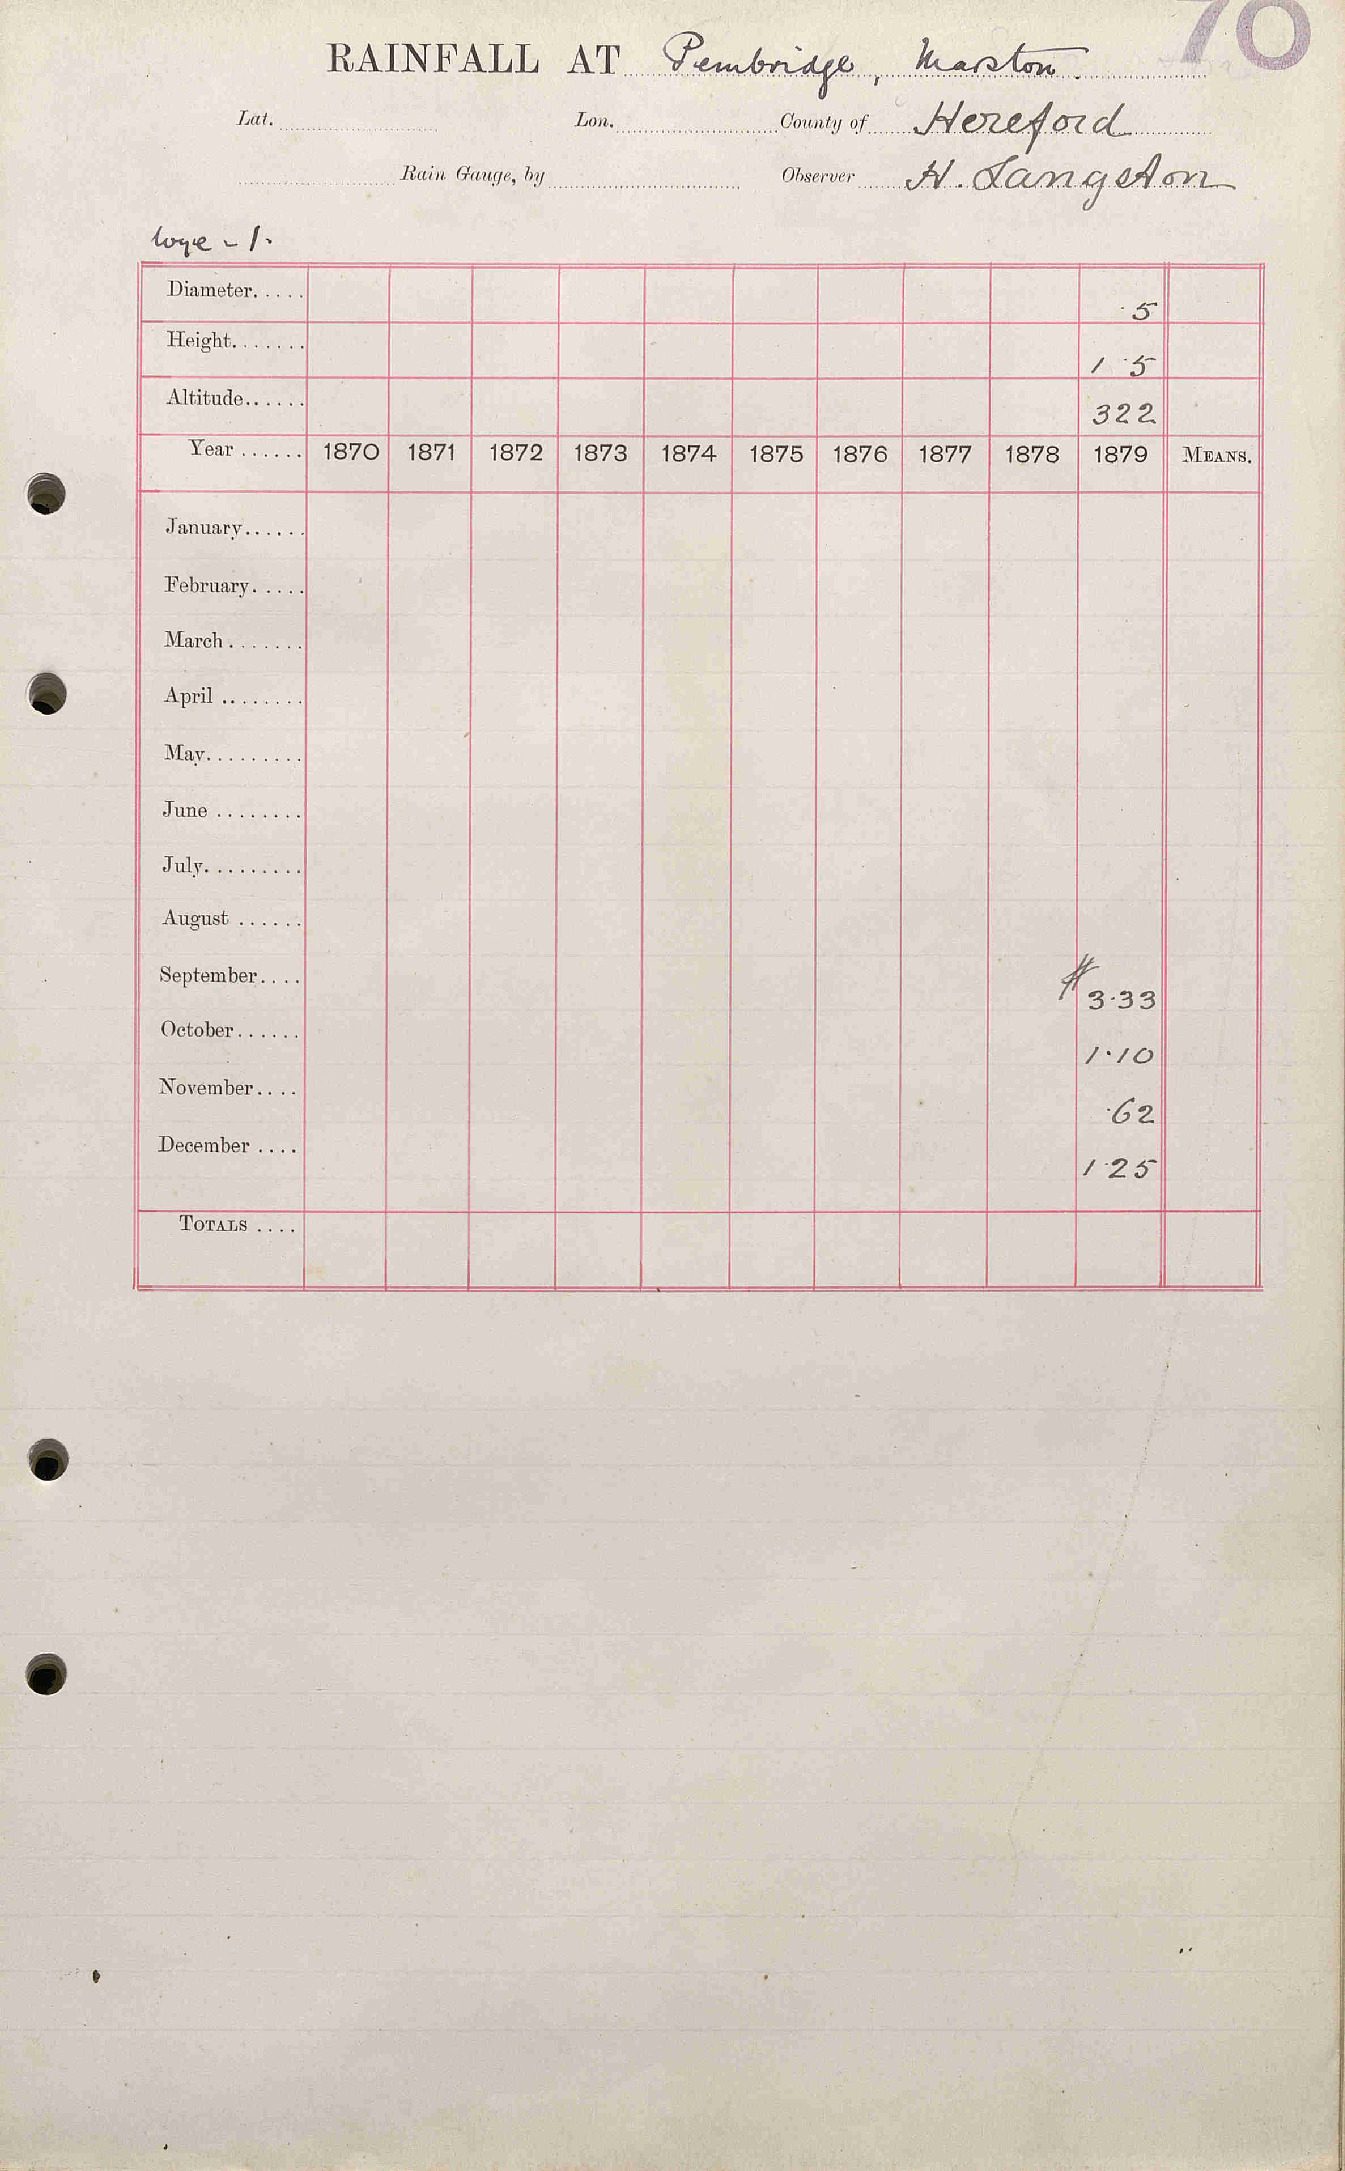 70
RAINFALL AT Pembridge, Marston.
Lat. Lon. County of Hereford
Rain Gauge, by Observer H. Langston
Wye - 1.
Diameter..... 5
Height....... 1·5
Altitude...... 322
Year ...... 1870 1871 1872 1873 1874 1875 1876 1877 1878 1879 MEANS.
January......
February.....
March.......
April ........
May.........
June ........
July.........
August ......
September.... # 3·33
October...... 1·10
November.... ·62
December .... 1·25
TOTALS ....